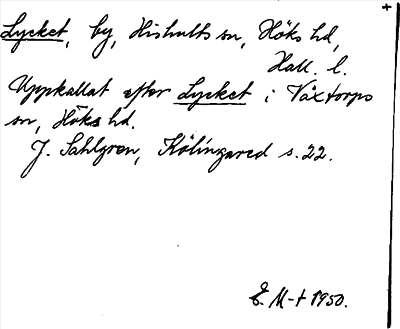 +
Lycket, by, Hishults sn, Höks hd,
Hall. l.
Uppkallat efter Lycket i Våxtorps
sn, Höks hd.
J. Sahlgren, Kölingared s. 22.
E. M-t 1950.